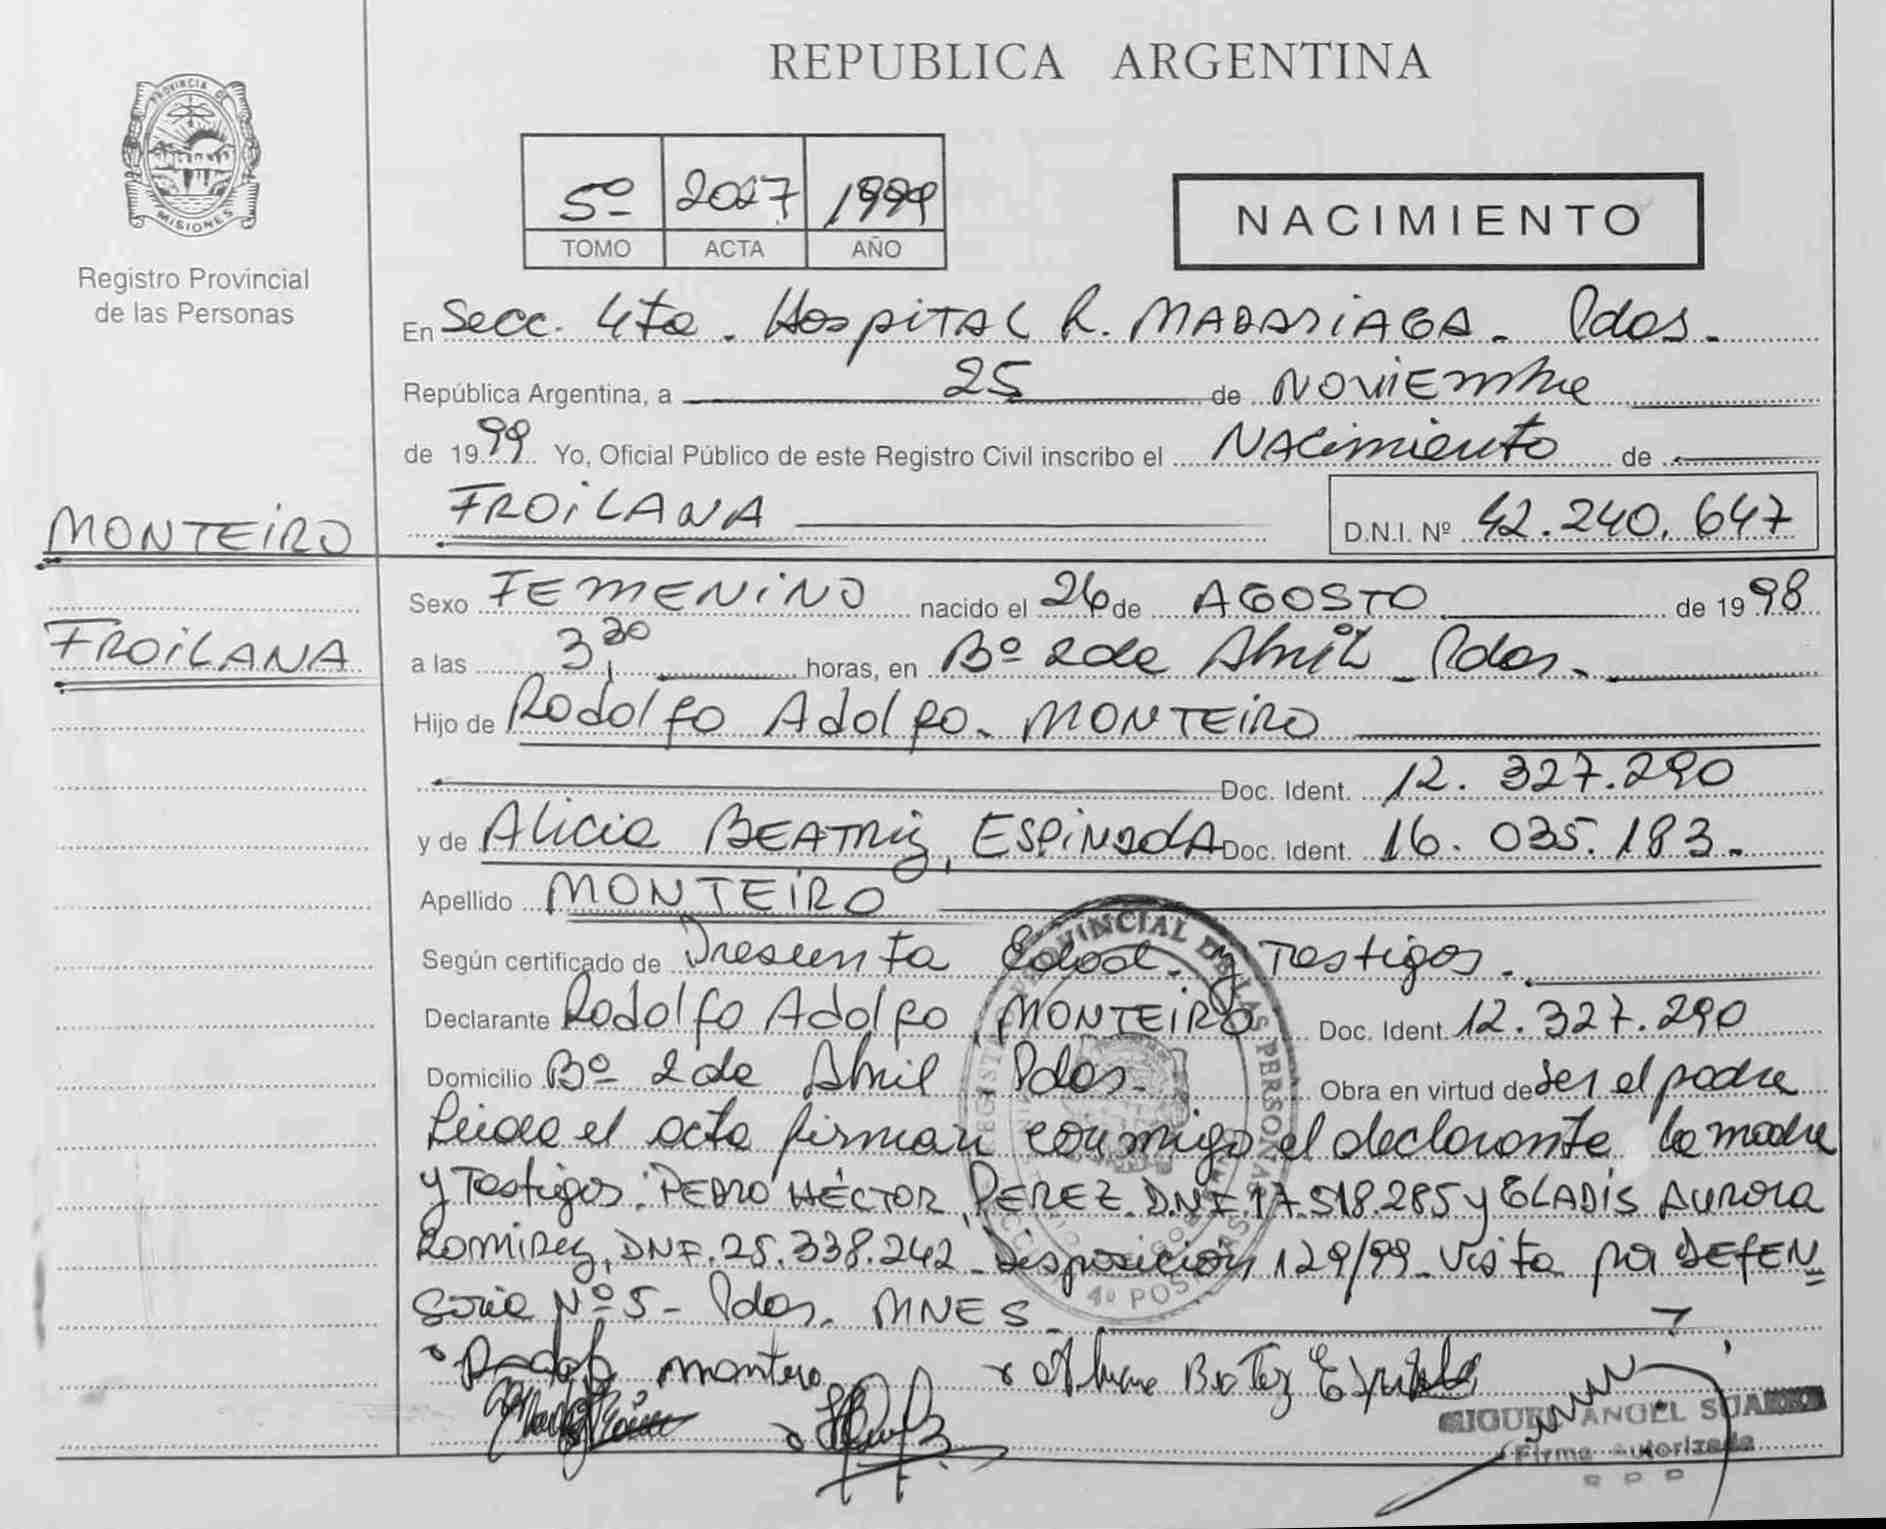 REPUBLICA ARGENTINA
PROVINCIA DE
MISIONES
Registro Provincial
de las Personas
5º 2027 1999
TOMO ACTA AÑO
NACIMIENTO
En Secc. 4ta. Hospital R. MADARIAGA. Pdas.
República Argentina, a 25 de Noviembre
de 1999 Yo, Oficial Público de este Registro Civil inscribo el Nacimiento de
FROILANA D.N.I. Nº 42.240.647
MONTEIRO
FROILANA
Sexo FEMENINO nacido el 26 de AGOSTO de 1998
a las 3,30 horas, en Bº 2 de Abril Pdas.
Hijo de Rodolfo Adolfo. MONTEIRO
Doc. Ident. 12.327.290
y de Alicia BEATRIZ, ESPINDOLA Doc. Ident. 16.035.183.
Apellido MONTEIRO
Según certificado de Presunta Edad y Testigos.
Declarante Rodolfo Adolfo, MONTEIRO Doc. Ident. 12.327.290
Domicilio Bº 2 de Abril Pdas. Obra en virtud de ser el padre
Leida el acta firman conmigo el declarante la madre
y Testigos: PEDRO HÉCTOR, PEREZ. DNI.17.518.285 y GLADIS AURORA
Ramirez, DNI.25.338.242 - Disposición 129/99 - Vista por DEFEN=
soria Nº 5 - Pdas. MNES
REGISTRO PROVINCIAL DE LAS PERSONAS
4º POSADAS
MIGUEL ANGEL SUAREZ
Firma Autorizada
R P P